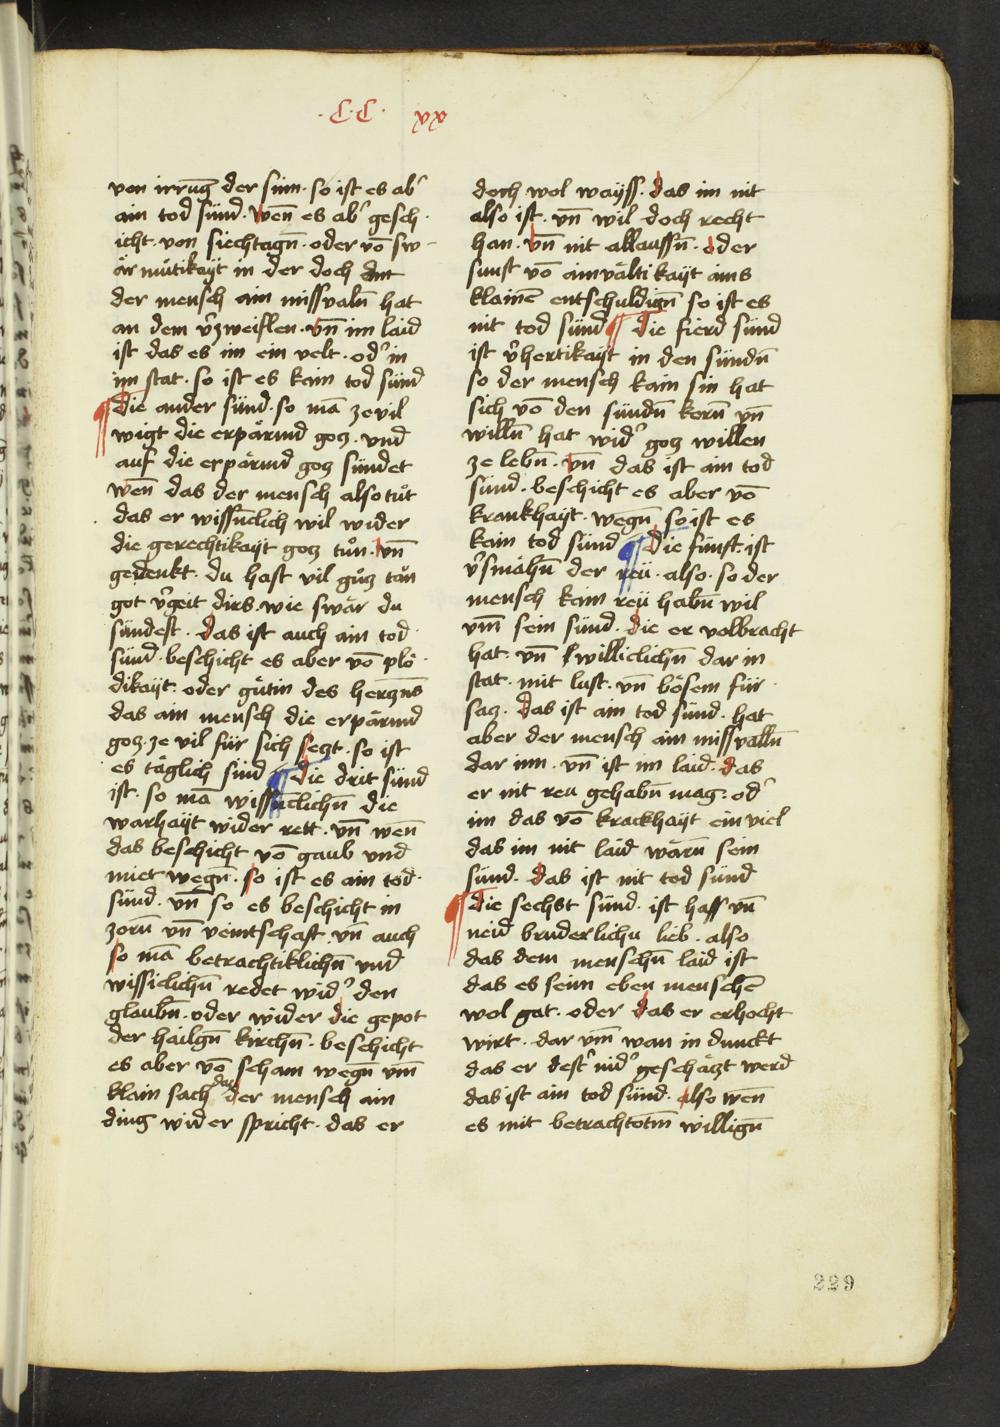 ·C·C· xx
von irrūg der sinn · so ist es ab᾽
ain tod sünd · wen̄ es ab᾽ gesch ·
icht · von siechtagn̄ · oder vō sw-
är mütikaÿt in der doch
der mensch ain missvaln̄ hat
an dem v᾽zweiflen · vn̄ im laid
ist das es im ein velt · od᾽ in
im stat · so ist es kain tod sünd
¶ die ander sünd · so mā ze vil
wigt die erpärmd gotz · vnd
auf die erpärmd gotz sündet
wen̄ das der mensch also tůt
das er wissn̄clich wil wider
die gerechtikaÿt gotz tůn · vn̄
gedenkt · du hast vil gůtz tān
got v᾽geit dirs · wie swär du
sündest · das ist auch ain tod
sünd · beschicht es aber vō plö ·
dikaÿt · oder gütin des hertzns̄
das ain mensch die erpärmd
gotz · ze vil für sich setzt · so ist
es täglich sünd ¶ die drit sünd
ist · so mā wissn̄clichn̄ die
warhaÿt wider rett · vn̄ wen̄
das beschicht vō gaub vnd
miet wegn̄ · so ist es ain tod ·
sünd · vn̄ so es beschicht in
zorn̄ vn̄ veintschaft · vn̄ auch
so mā betrachtiklichn̄ vnd
wissiclichn̄ redet wid᾽ den
glaubn̄ · oder wider die gepot
der hailgn̄ kirchn̄ · beschicht
es aber vō scham wegn̄ vm̄
klain sach das der mensch ain
ding wider spricht · das er
doch wol waÿss · das im nit
also ist · vn̄ wil doch recht
han · vn̄ nit allaussn̄ · oder
sunst vō ainvältikaÿt ains
klainē entschuldign̄ so ist es
nit tod sünd ¶ die fierd sünd
ist v᾽hertikaÿt in den sündn̄
so der mensch kain sin hat
sich vō den sündn̄ kern̄ vn̄
willn̄ hat wid᾽ gotz willen
ze lebn̄ · vn̄ das ist ain tod
sünd · beschicht es aber vō
krankhaÿt · wegn̄ so ist es
kain tod sünd ¶ die fünft · ist
v᾽smähn̄ der reü · also · so der
mensch kain reü habn̄ wil
vm̄ sein sünd · die er volbracht
hat · vn̄ williclichn̄ dar in
stat · mit lust · vn̄ bösem für ·
satz · das ist ain tod sünd · hat
aber der mensch ain missvalln̄
dar inn · vn̄ ist im laid · das
er nit reu gehabn̄ mag · od᾽
im das vō krackhaÿt ein viel
das im nit laid wärn̄ sein
sünd · das ist nit tod sünd
¶ die sechst sünd · ist hass vn̄
neid bruderlichn lieb · also
das dem menschn̄ laid ist
das es seinn eben menschē
wol gat · oder das er erhocht
wirt · dar vm̄ wan in dunckt
das er dest᾽ mid᾽ geschätzt werd
das ist ain tod sünd · also wen̄
es mit betrachtotm̄ willign̄
229